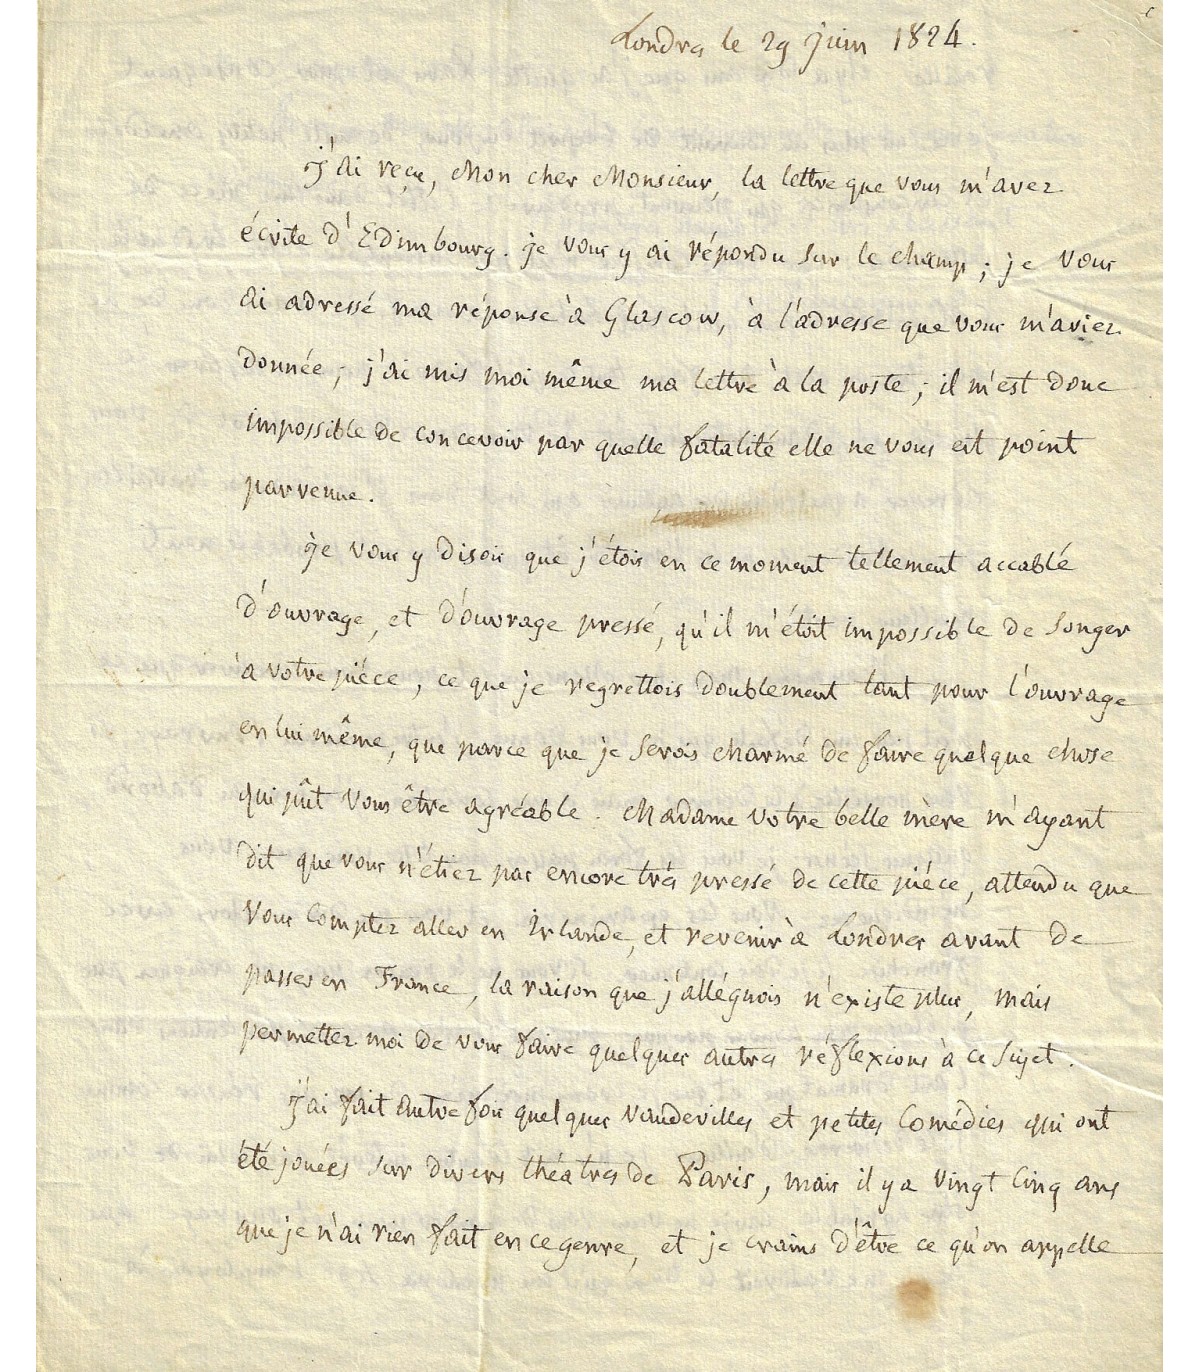 Londres le 29 juin 1824.
j'ai reçu, Mon cher Monsieur, la lettre que vous m'avez
écrite d'Edimbourg. je vous y ai répondu sur le champ; je vous
ai adressé ma réponse à Glascow, à l'adresse que vous m'aviez
donnée; j'ai mis moi même ma lettre à la poste; il m'est donc
impossible de concevoir par quelle fatalité elle ne vous est point
parvenue.
je vous y disois que j'étois en ce moment tellement accablé
d'ouvrage, et d'ouvrage pressé, qu'il m'étoit impossible de songer
à votre piéce, ce que je regrettois doublement tant pour l'ouvrage
en lui même, que parce que je serois charmé de faire quelque chose
qui pût vous être agréable. Madame votre belle mère m'ayant
dit que vous n'étiez pas encore trés pressé de cette piéce, attendu que
vous comptez aller en Irlande, et revenir à Londres avant de
passer en France, la raison que j'alléguois n'existe plus, mais
permettez moi de vous faire quelques autres réflexions à ce sujet.
j'ai fait autre fois quelques vaudevilles et petites comédies qui ont
été jouées sur divers théatres de Paris, mais il y a vingt cinq ans
que je n'ai rien fait en ce genre, et je crains d'être ce qu'on appelle